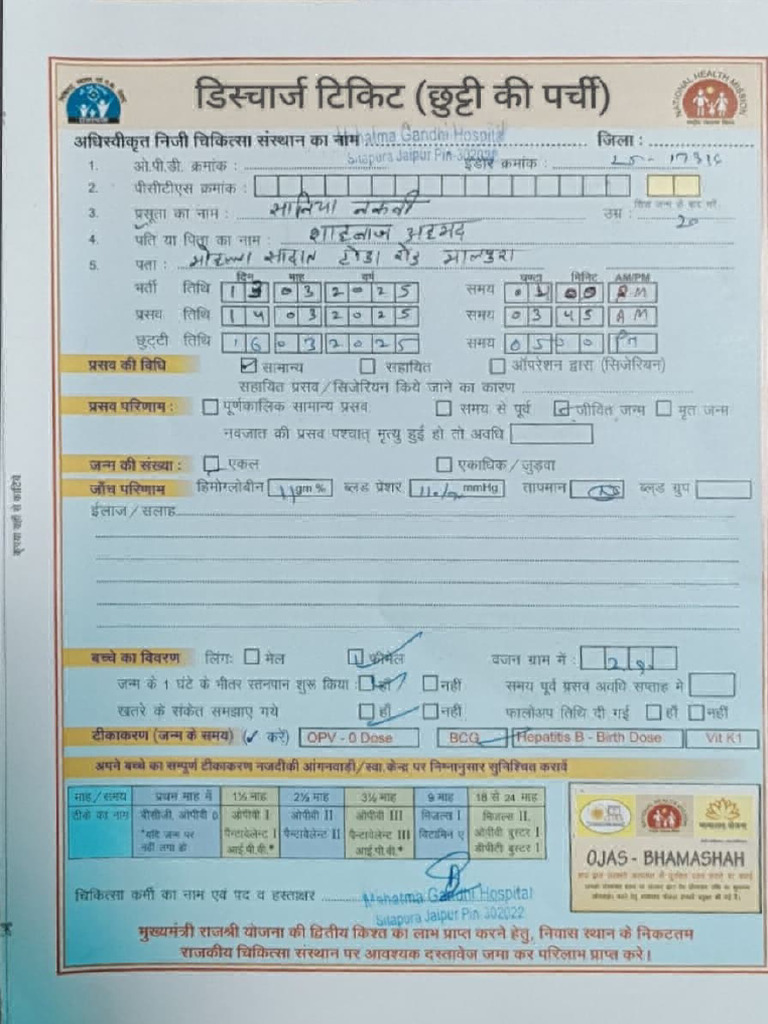 डिस्चार्ज टिकिट (छुट्टी की पर्ची)
NATIONAL HEALTH MISSION
अधिस्वीकृत निजी चिकित्सा संस्थान का नाम Mahatma Gandhi Hospital जिला :
Sitapura Jaipur Pin 302022
1. ओ.पी.डी. क्रमांक : इंडोर क्रमांक :
2. पीसीटीएस क्रमांक :
3. प्रसूता का नाम : सानिया नकवी उम्र : 20
4. पति या पिता का नाम : शाहनाज अहमद
5. पता : मोहल्ला सादात टोडा रोड मालपुरा
दिन माह वर्ष घण्टा मिनिट AM/PM
भर्ती तिथि 13 03 2025 समय
प्रसव तिथि 14 03 2025 समय 03 45 AM
छुट्टी तिथि 16 03 2025 समय 05 00 PM
प्रसव की विधि सामान्य सहायित ऑपरेशन द्वारा (सिजेरियन)
सहायित प्रसव / सिजेरियन किये जाने का कारण
प्रसव परिणाम : पूर्णकालिक सामान्य प्रसव समय से पूर्व जीवित जन्म मृत जन्म
नवजात की प्रसव पश्चात् मृत्यु हुई हो तो अवधि
जन्म की संख्या : एकल एकाधिक / जुड़वा
जाँच परिणाम हिमोग्लोबीन 11 gm % ब्लड प्रेशर mmHg तापमान ब्लड ग्रुप
ईलाज / सलाह
बच्चे का विवरण लिंग: मेल फीमेल वजन ग्राम में :
जन्म के 1 घंटे के भीतर स्तनपान शुरू किया : हाँ नहीं समय पूर्व प्रसव अवधि सप्ताह मे
खतरे के संकेत समझाए गये हाँ नहीं फालोअप तिथि दी गई हाँ नहीं
टीकाकरण (जन्म के समय) (✓ करें) OPV - 0 Dose BCG Hepatitis B - Birth Dose Vit K1
अपने बच्चे का सम्पुर्ण टीकाकरण नजदीकी आंगनवाड़ी / स्वा. केन्द्र पर निम्नानुसार सुनिश्चित करावें
माह / समय प्रथम माह में 1½ माह 2½ माह 3½ माह 9 माह 18 से 24 माह
टीके का नाम बीसीजी, ओपीवी 0 ओपीवी I ओपीवी II ओपीवी III मिजल्स I मिजल्स II,
*यदि जन्म पर पैन्टावेलेन्ट I पैन्टावेलेन्ट II पैन्टावेलेन्ट III विटामिन ए ओपीवी बुस्टर I
नही लगा हो आई.पी.वी.* आई.पी.वी.* डीपीटी बुस्टर I
OJAS - BHAMASHAH
चिकित्सा कर्मी का नाम एवं पद व हस्ताक्षर Mahatma Gandhi Hospital
Sitapura Jaipur Pin 302022
मुख्यमंत्री राजश्री योजना की द्वितीय किश्त का लाभ प्राप्त करने हेतु, निवास स्थान के निकटतम
राजकीय चिकित्सा संस्थान पर आवश्यक दस्तावेज जमा कर परिलाभ प्राप्त करे।
कृपया यहाँ से काटिये